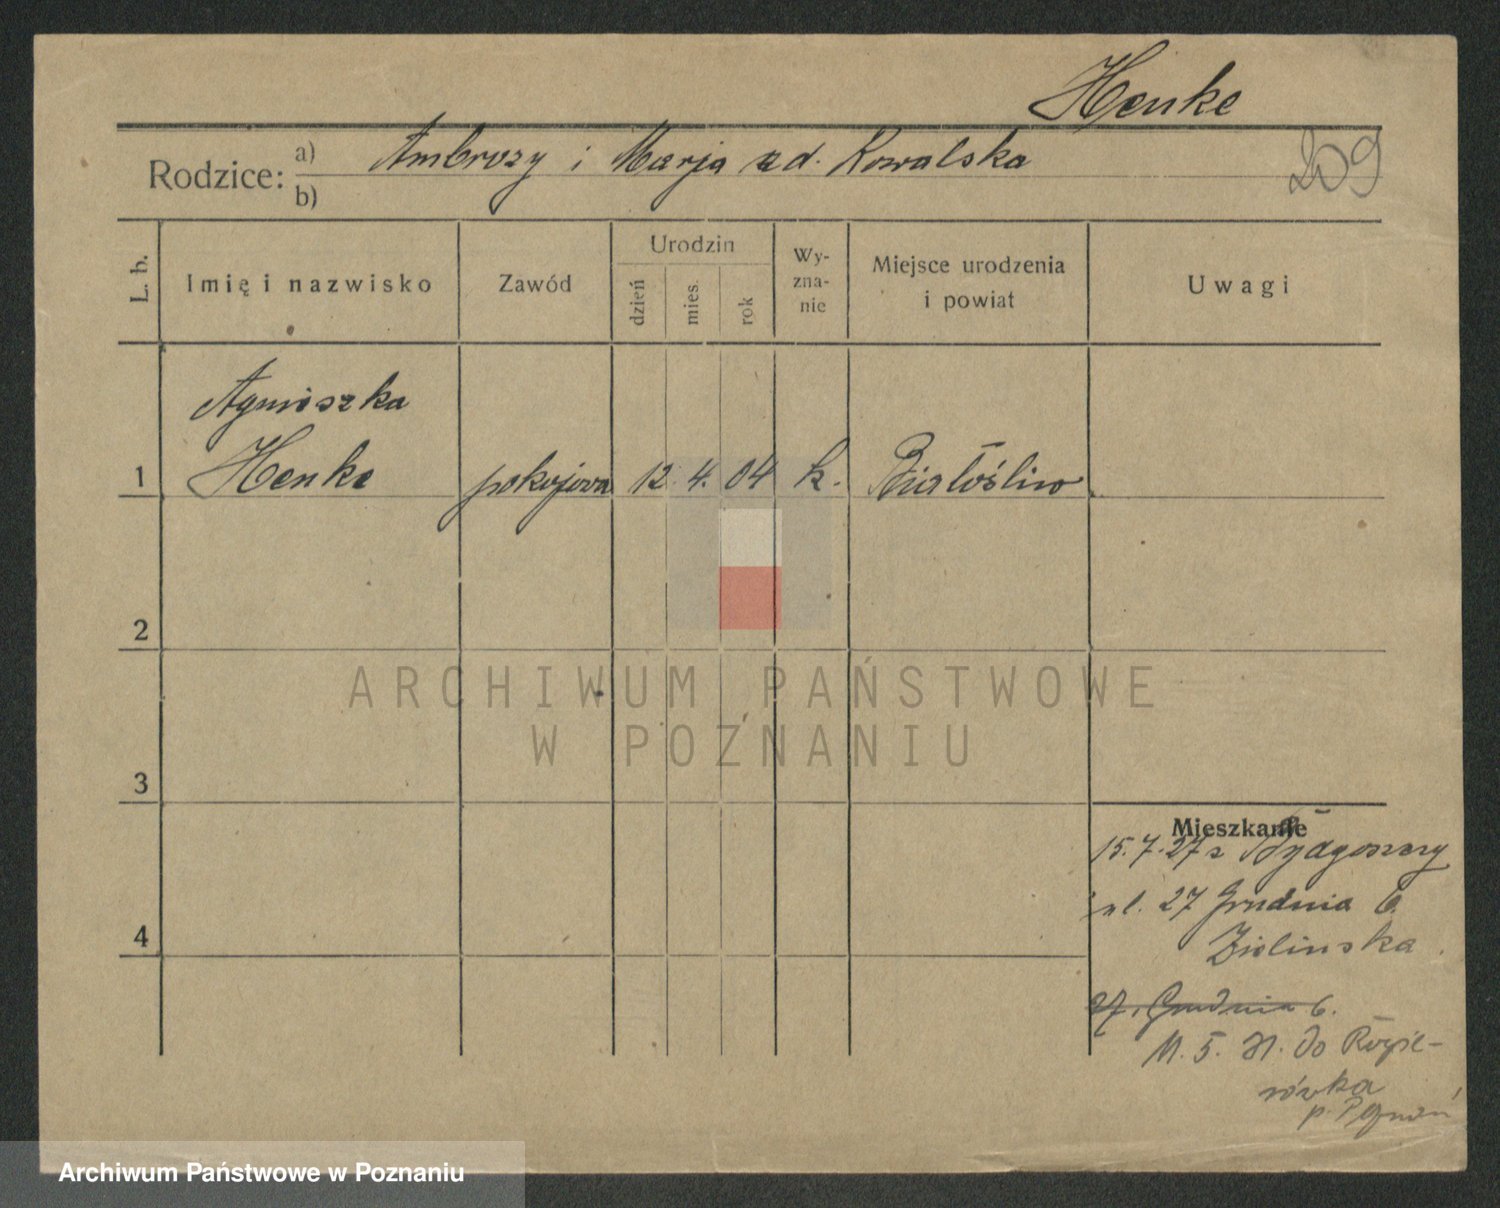 Henke
209
Rodzice: a) Ambroży i Marja zd. Kowalska
b)
L. b.
Imię i nazwisko
Zawód
Urodzin
dzień
mies.
rok
Wy-
zna-
nie
Miejsce urodzenia
i powiat
Uwagi
Agnieszka
1 Henke pokojowa 12. 4. 04 k. Białośliw
2
3
4
Mieszkanie
15.7.27 z Bydgoszczy
ul. 27 Grudnia 6.
Zielinska
27. Grudnia 6.
do
p.
ARCHIWUM PAŃSTWOWE
W POZNANIU
Archiwum Państwowe w Poznaniu